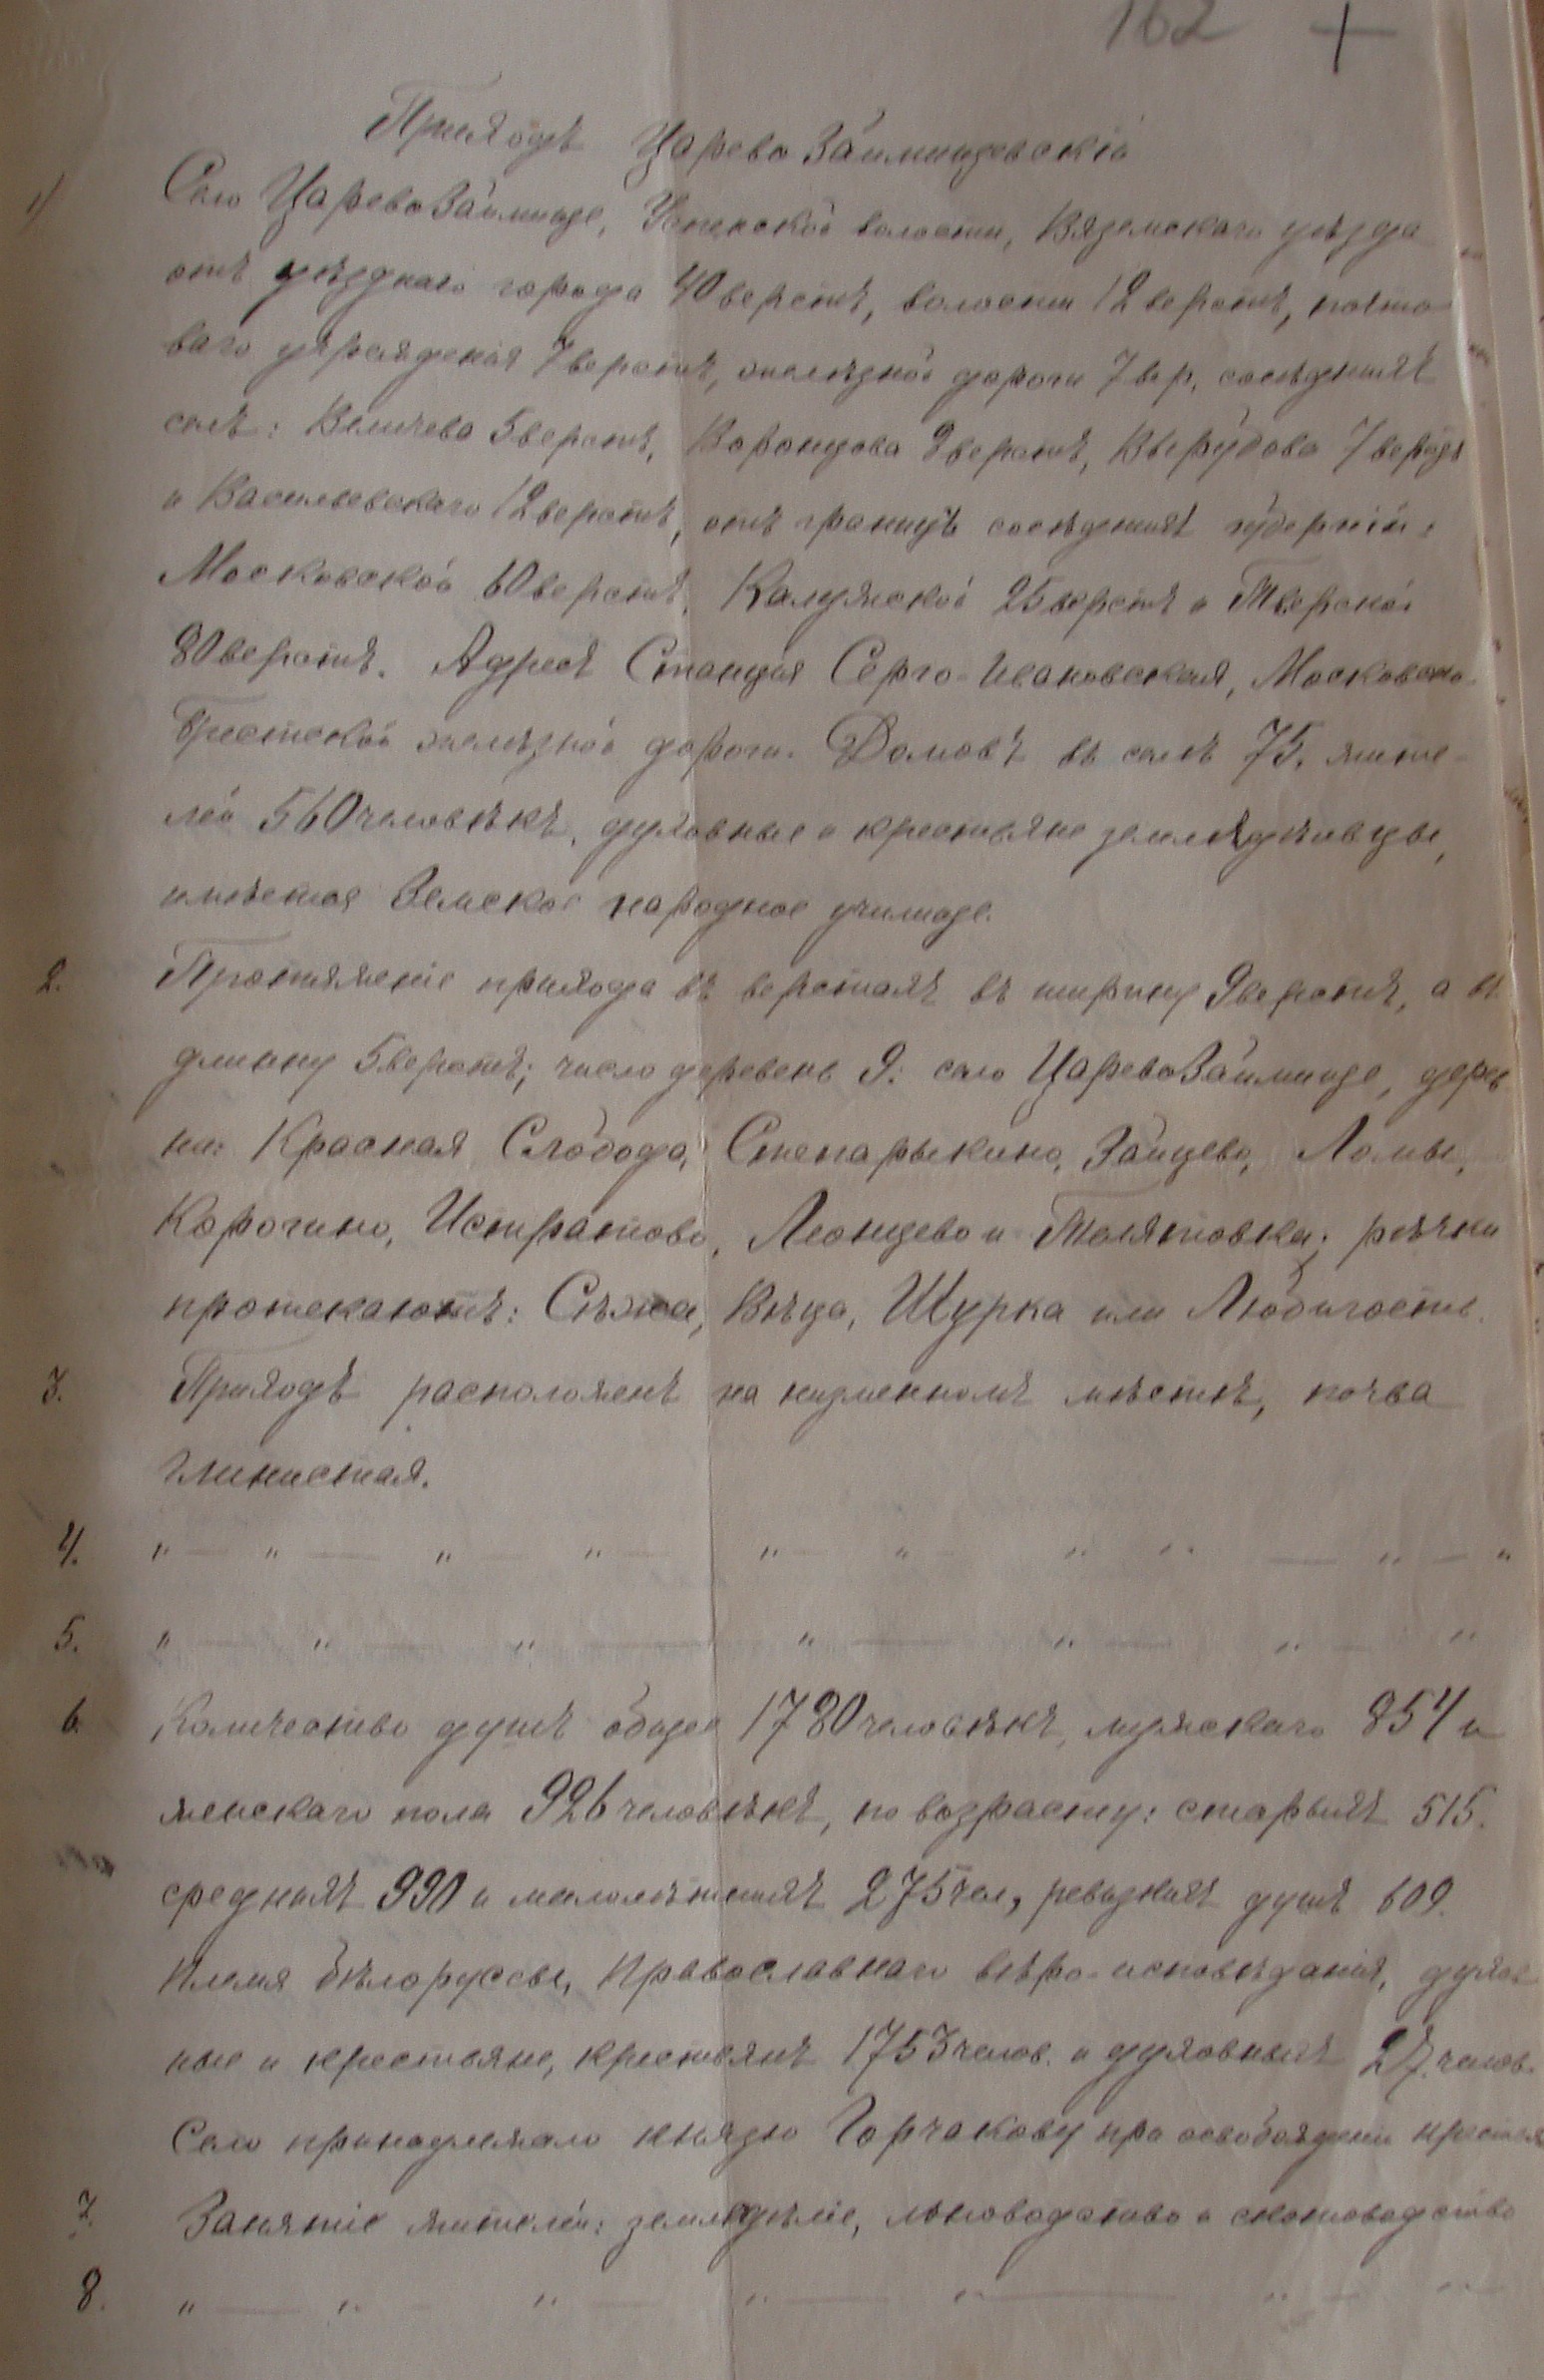 162 +
Приходъ Царево Займищевскій
1) Село Царево Займище, Успенской волости, Вяземскаго уѣзда
отъ уѣзднаго города 40 верстъ, волости 12 верстъ, почто-
ваго учрежденія 7 верстъ, желѣзной дороги 7 вер, сосѣднихъ
селъ: Величева 5 верстъ, Воронцова 8 верстъ, Вырубова 7 верстъ
и Васильевскаго 12 верстъ, отъ границъ сосѣднихъ губерній:
Московской 60 верстъ, Калужской 25 верстъ и Тверской
80 верстъ. Адресъ Станція Серго-Ивановская, Московско-
Брестской желѣзной дороги. Домовъ въ селѣ 75, жите-
лей 560 человѣкъ, духовные и крестьяне землѣдѣльцы,
имѣется Земское народное училище.
2. Протяженіе прихода въ верстахъ въ ширину 9 верстъ, а въ
длинну 5 верстъ; число деревень 9: село Царево Займище, дерев
ни: Красная Слобода, Степарыкино, Зайцево, Ломы,
Корогино, Истратово, Леонцево и Толятовка; рѣчки
протекаютъ: Сѣжа, Вѣца, Щурка или Любигость.
3. Приходъ расположенъ на низменномъ мѣстѣ, почва
глинистая.
4. " — " — " — " — " — " — " " — " — "
5. " — " — " — " — " — " — "
6. Количество душъ общее 1780 человѣкъ, мужскаго 854 и
женскаго пола 926 человѣкъ, по возрасту: старыхъ 515.
среднихъ 990 и малолѣтнихъ 275 чел, ревизкихъ душъ 609.
племя бѣлоруссы, Православнаго вѣро-исповѣданія, духов
ные и крестьяне, крестьянъ 1753 челов. и духовныхъ 27. челов.
Село принадлежало князю Горчакову при освобожденіи крестьян
7. Занятіе жителей: земледѣліе, льноводство и скотоводство
8. " — " — " — " — " — " — "